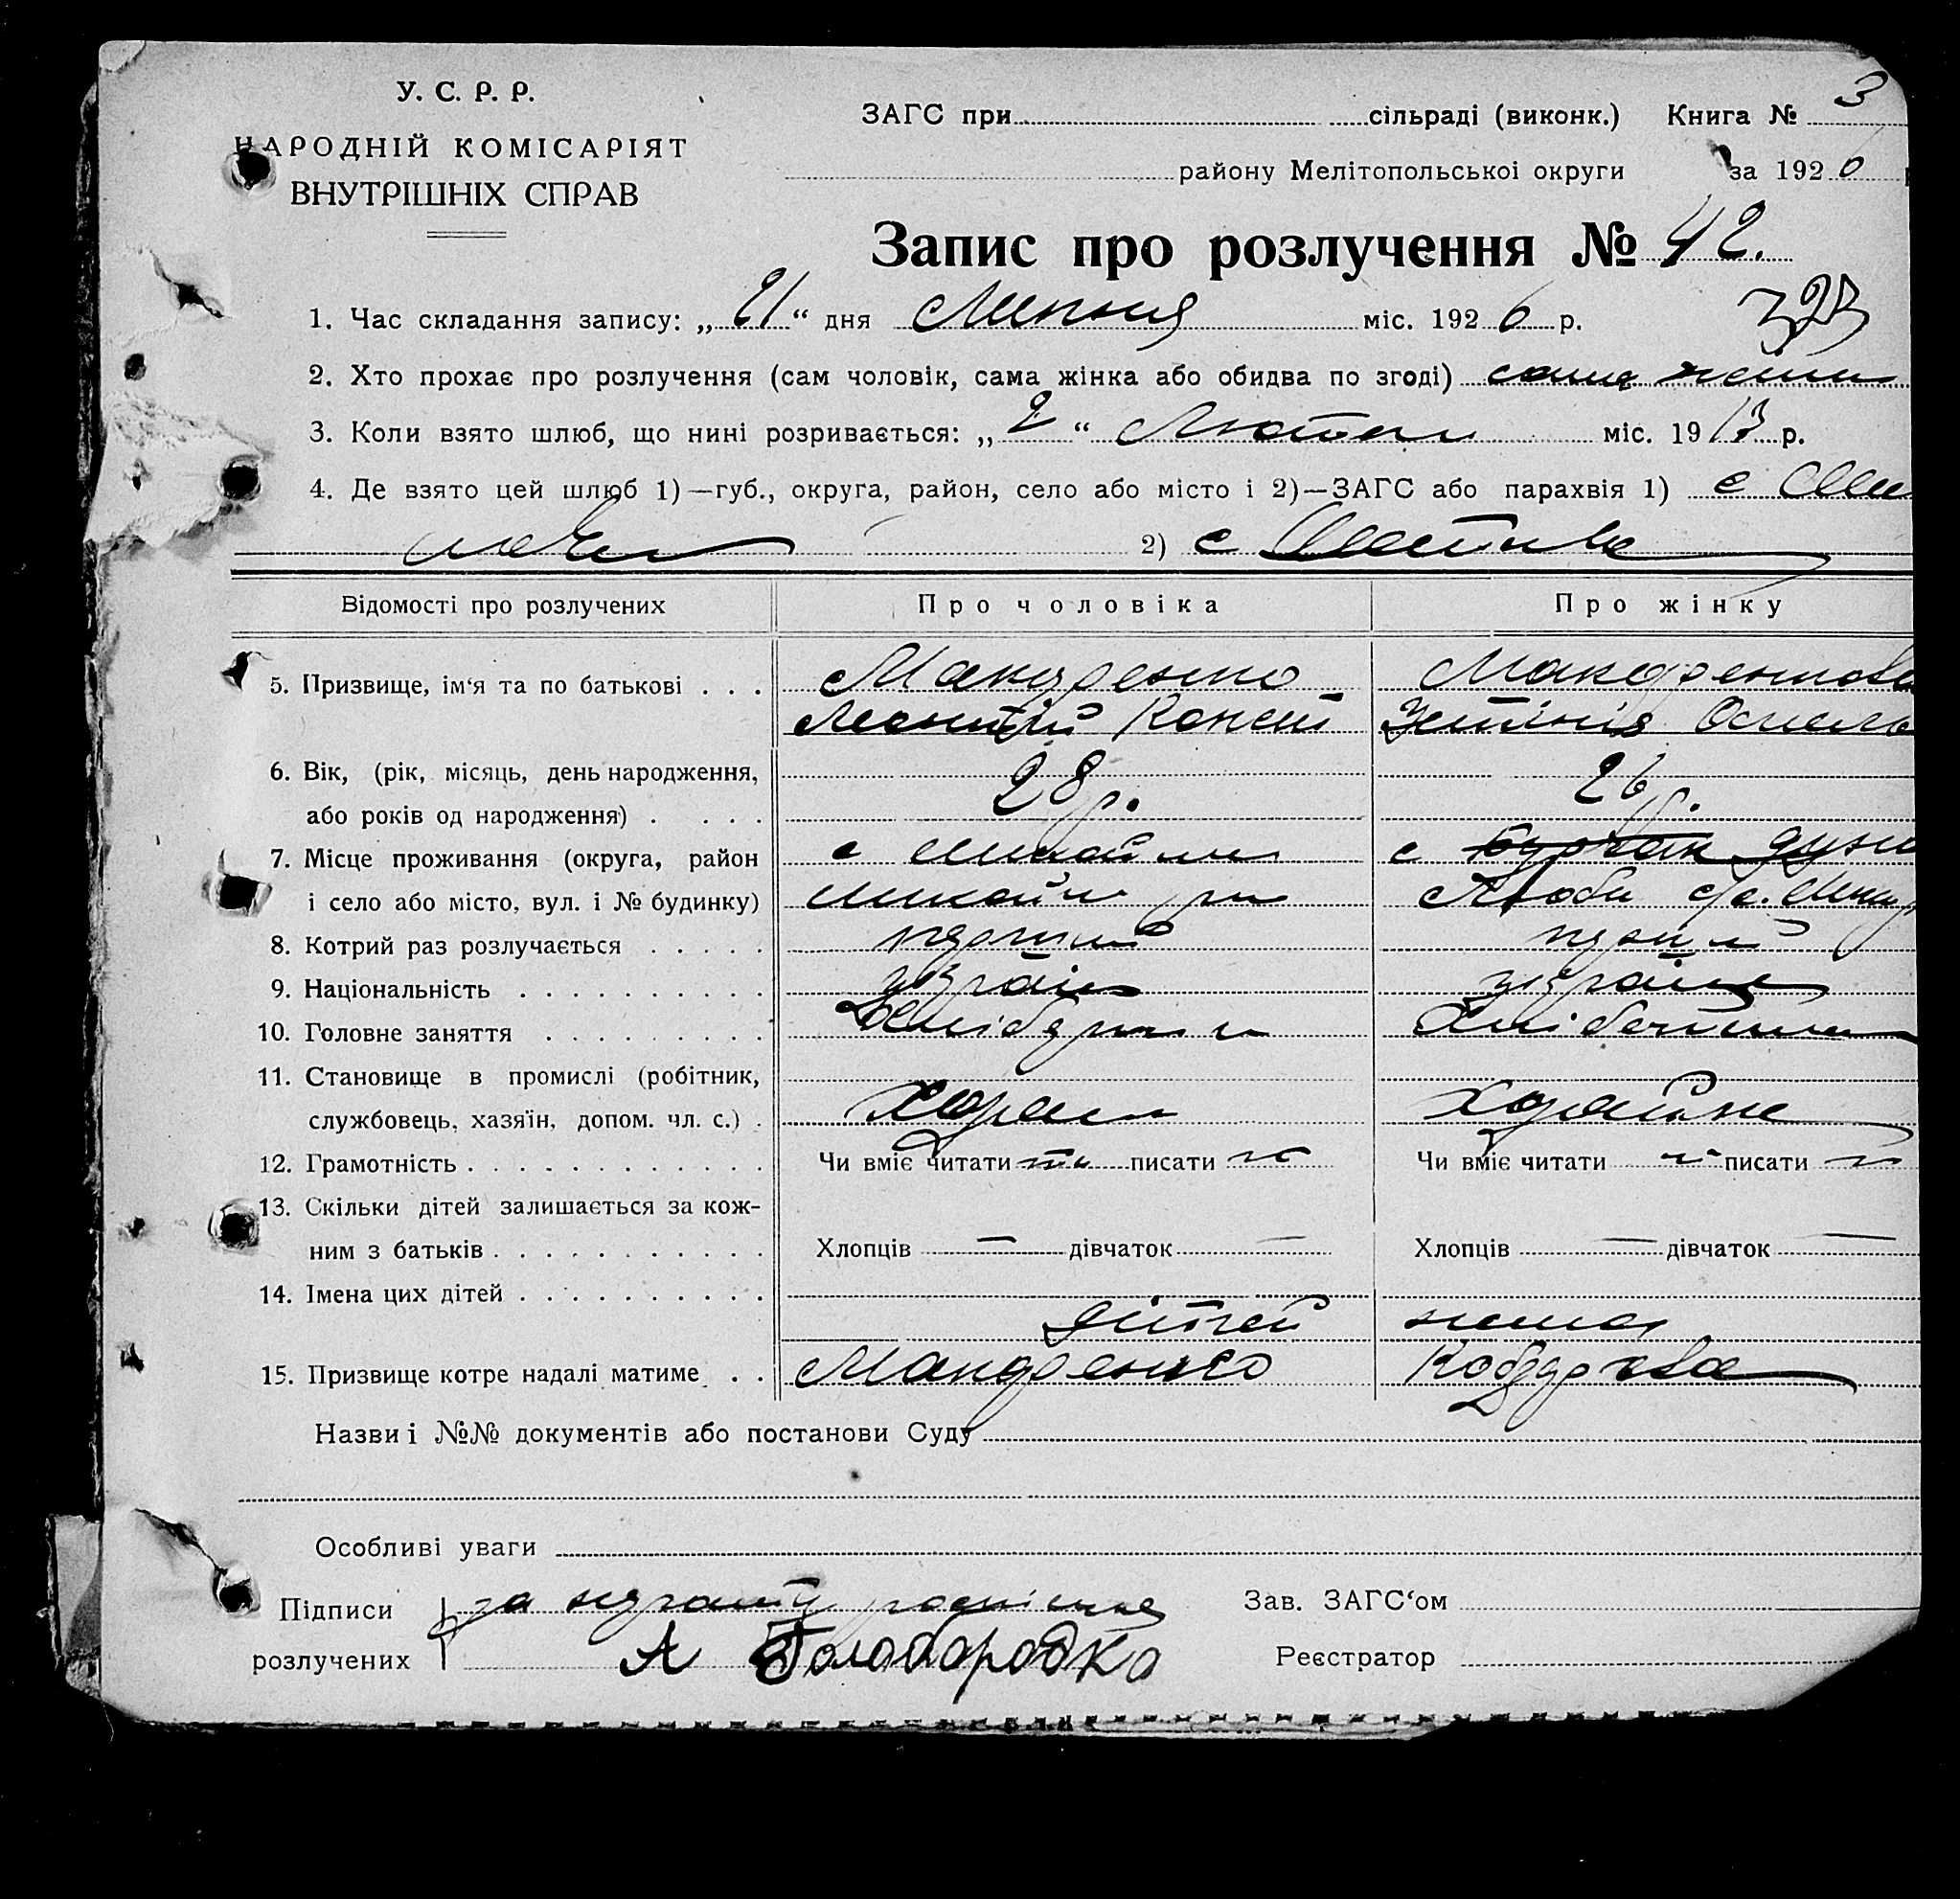 У. С. Р. Р.
НАРОДНІЙ КОМІСАРІЯТ
ВНУТРІШНІХ СПРАВ
ЗАГС при сільраді (виконк.) Книга № 3
району Мелітопольськоі округи за 1926
Запис про розлучення № 42.
1. Час складання запису: „21“ дня Липня міс. 1926 р.
323
2. Хто прохає про розлучення (сам чоловік, сама жінка або обидва по згоді) сама жінка
3. Коли взято шлюб, що нині розривається: „2“ Лютого міс. 19 р.
4. Де взято цей шлюб 1)—губ., округа, район, село або місто і 2)—ЗАГС або парахвія 1) с
2) с
Відомості про розлучених Про чоловіка Про жінку
5. Призвище, ім‘я та по батькові . . . Мандренко Мандренкова
Леонтій Конст Устінія
6. Вік, (рік, місяць, день народження,
або років од народження) . . . . 28 р. 26 р.
7. Місце проживання (округа, район с с
і село або місто, вул. і № будинку)
8. Котрий раз розлучається . . . . .
9. Національність . . . . . . . . . україн україн
10. Головне заняття . . . . . . . .
11. Становище в промислі (робітник,
службовець, хазяїн, допом. чл. с.) . Хазяїн Хазяйка
12. Грамотність . . . . . . . . . . . Чи вміє читати писати Чи вміє читати писати
13. Скільки дітей залишається за кож-
ним з батьків . . . . . . . . . . Хлопців — дівчаток — Хлопців — дівчаток —
14. Імена цих дітей . . . . . . . . .
дітей нема
15. Призвище котре надалі матиме . . Мандренко
Назви і №№ документів або постанови Суду
Особливі уваги
Підписи за Зав. ЗАГС‘ом
розлучених А Голобородко Реєстратор